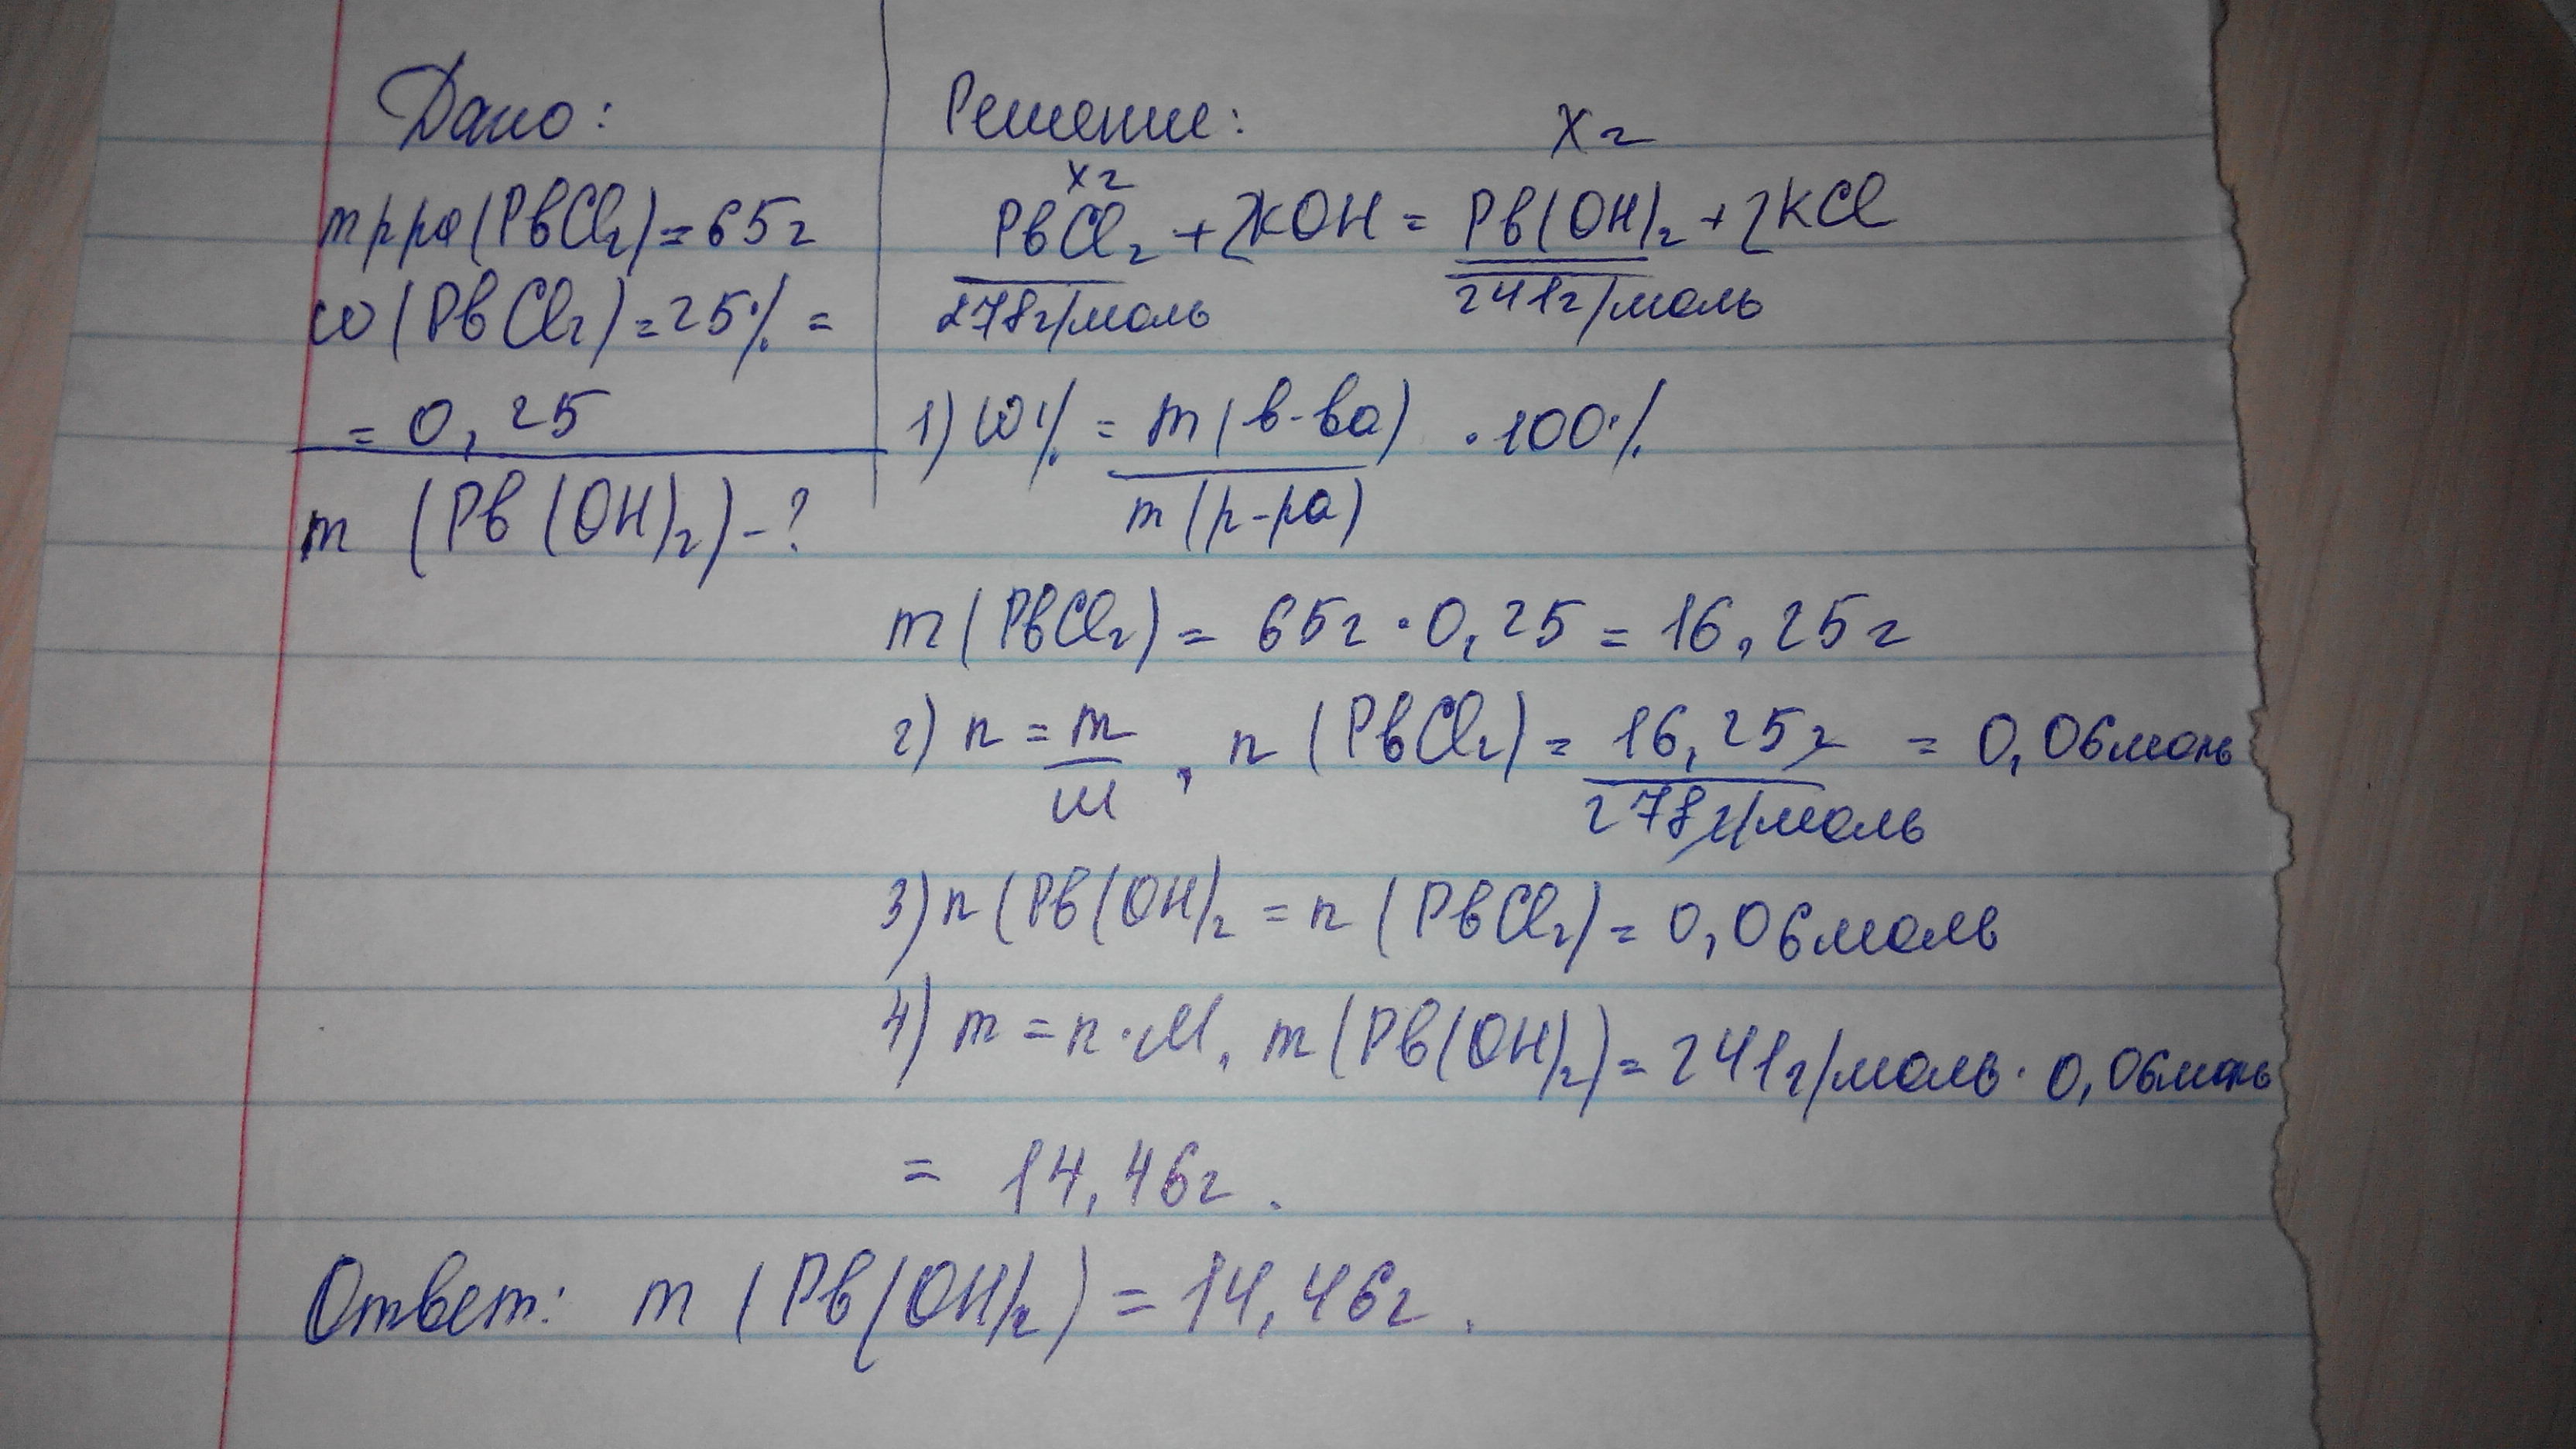 Дано:
mр-ра(PbCl₂)=65г
ω(PbCl₂)=25% =
= 0,25
m (Pb(OH)₂)-?
Решение:
хг
Хг
PbCl₂ + 2KOH = Pb(OH)₂ + 2KCl
278г/моль
241г/моль
1) ω% = m(в-ва) · 100%
m(р-ра)
m(PbCl₂) = 65г · 0,25 = 16,25г
2) n = m , n (PbCl₂) = 16,25г = 0,06моль
M 278г/моль
3) n(Pb(OH)₂ = n (PbCl₂) = 0,06моль
4) m = n·M, m(Pb(OH)₂) = 241г/моль · 0,06моль
= 14,46г.
Ответ: m (Pb(OH)₂) = 14,46г.